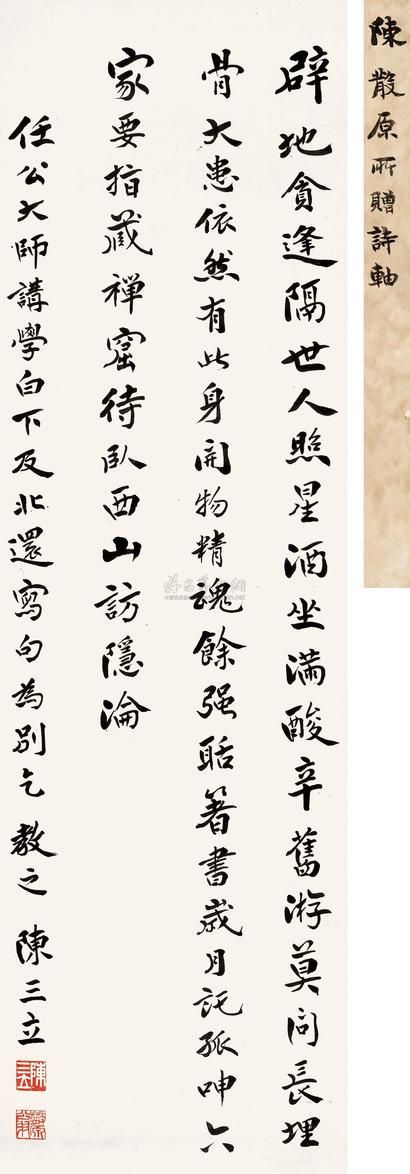 陳散原所贈詩軸
辟地貪逢隔世人照星酒坐滿酸辛舊游莫問長埋
骨大患依然有此身開物精魂餘强聒著書歲月託孤呻六
家要指藏禪窟待臥西山訪隱淪
任公大師講學白下及北還寫句為別乞教之 陳三立